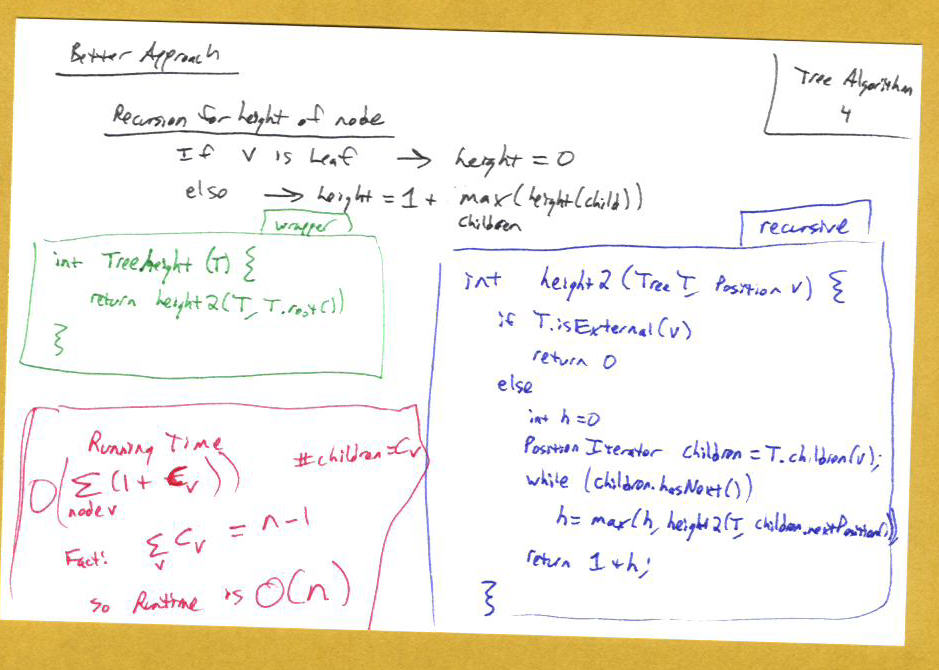 Better Approach
Tree Algorithm
4
Recursion for height of node
If v is Leaf → height = 0
else → height = 1 + max(height(child))
children
wrapper
int Treeheight (T) {
return height2(T, T.root())
}
recursive
int height2 (Tree T, Position v) {
if T.isExternal(v)
return 0
else
int h=0
Position Iterator children = T.children(v);
while (children.hasNext())
h= max(h, height2(T, children.nextPosition())
return 1+h;
}
Running Time
#children=Cv
O(∑(1+ Cv))
node v
Fact: ∑ Cv = n-1
v
so Runtime is O(n)